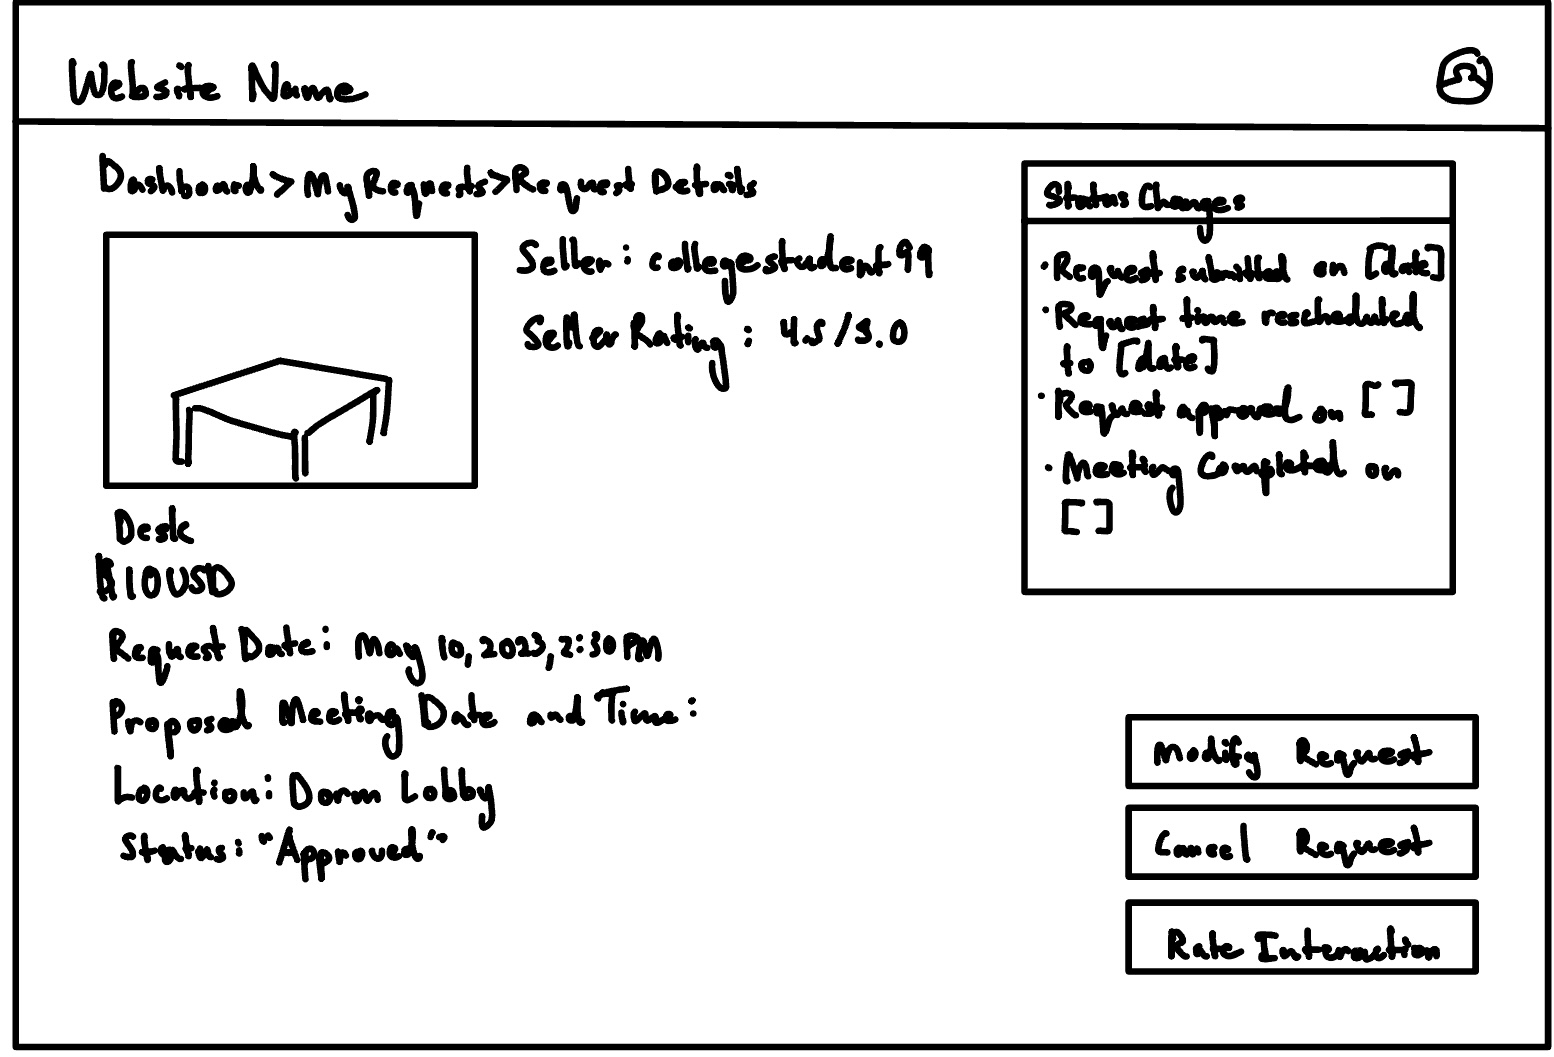 Website Name
Dashboard > My Requests > Request Details
Seller: collegestudent99
Seller Rating: 4.5/5.0
Desk
$10 USD
Request Date: May 10, 2023, 2:30 PM
Proposed Meeting Date and Time:
Location: Dorm Lobby
Status: "Approved"
Status Changes
· Request submitted on [date]
· Request time rescheduled
to [date]
· Request approved on [ ]
· Meeting Completed on
[ ]
Modify Request
Cancel Request
Rate Interaction